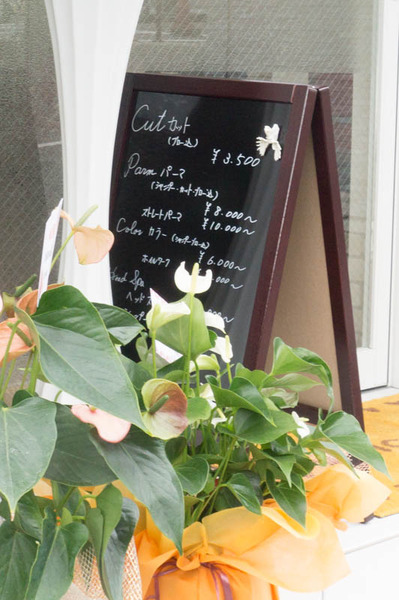 Cut カット
(ブロー込)
¥3.500
Parm パーマ
(シャンプー・カット・ブロー込)
¥8.000~
ストレートパーマ ¥10.000~
Color カラー (シャンプー・ブロー込)
¥6.000~
ホイルワーク ¥2.000~
Head Spa
ヘッド